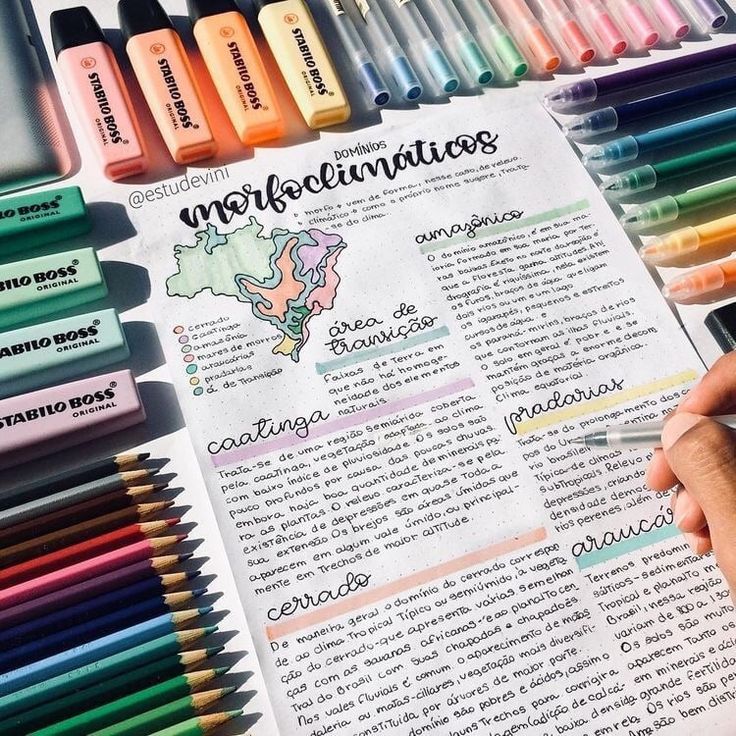 STABILO BOSS
ORIGINAL
STABILO BOSS
ORIGINAL
STABILO BOSS
ORIGINAL
STABILO BOSS
ORIGINAL
ORIGINAL
ILO BOSS
ORIGINAL
ILO BOSS
ORIGINAL
STABILO BOSS
ORIGINAL
@estudevini
DOMÍNIOS
morfoclimáticos
morfo = vem de forma, nesse caso, de relevo.
climático = como o próprio nome sugere, trata-
se do clima.
cerrado
caatinga
amazônia
mares de morros
araucárias
pradarias
á. de Transição
área de
transição
Faixas de Terra em
que não há homoge-
neidade dos elementos
naturais.
amazônico
O domínio amazônico, é em sua ma
ioria formado em sua maioria por Ter
ras baixas. Exeto no norte da região é
que a floresta ganha altitudes. A hi
drografia é riquíssima, nela existem
os furos, braços de água que ligam
dois rios ou um e um lago.
os igarapés, pequenos e estreitos
cursos de água. e
os paraná-mirins, braços de rios
que contornam as ilhas fluviais.
O solo em geral é pobre e se
mantém graças a enorme decom
posição de matéria orgânica.
Clima equatorial.
caatinga
Trata-se de uma região semiárida coberta
pela caatinga, vegetação adaptada ao clima
com baixo índice de pluviosidade. Os solos são
pouco profundos por causa das poucas chuvas
embora haja boa quantidade de minerais pa
ra as plantas. O relevo caracteriza-se pela
existência de depressões em quase toda a
sua extensão. Os brejos são áreas úmidas que
aparecem em algum vale úmido, ou principal-
mente em Trechos de maior altitude.
pradarias
Trata-se do prolongamento dos
pos do
rio brasilei
Típica de clima
subtropical. Relevo
depressões, criando
densidade
rios perenes, além de
cerrado
De maneira geral o domínio do cerrado correspon
de ao clima Tropical Típico ou semiúmido, já vegeta
ção do cerrado - que apresenta várias semelhan
ças com as savanas africanas - e ao planalto cen
tral do Brasil com suas chapadas e chapadões.
Nos vales fluviais é comum o aparecimento de matas
galeria ou matas-ciliares, vegetação mais diversifi
constituída por árvores de maior porte.
domínio são pobres e ácidos, assim
alguns Trechos para corrigir a
(adição de calcá
baixa densida
araucá
Terrenos predomin
sáticos-sedimenta
Tropical e planalto m
Brasil, nessa região
variam de 800 a 130
Os solos são muito
aparecem Tanto os
em minerais e ácid
grande fertilida
Os rios são pe
são bem distri